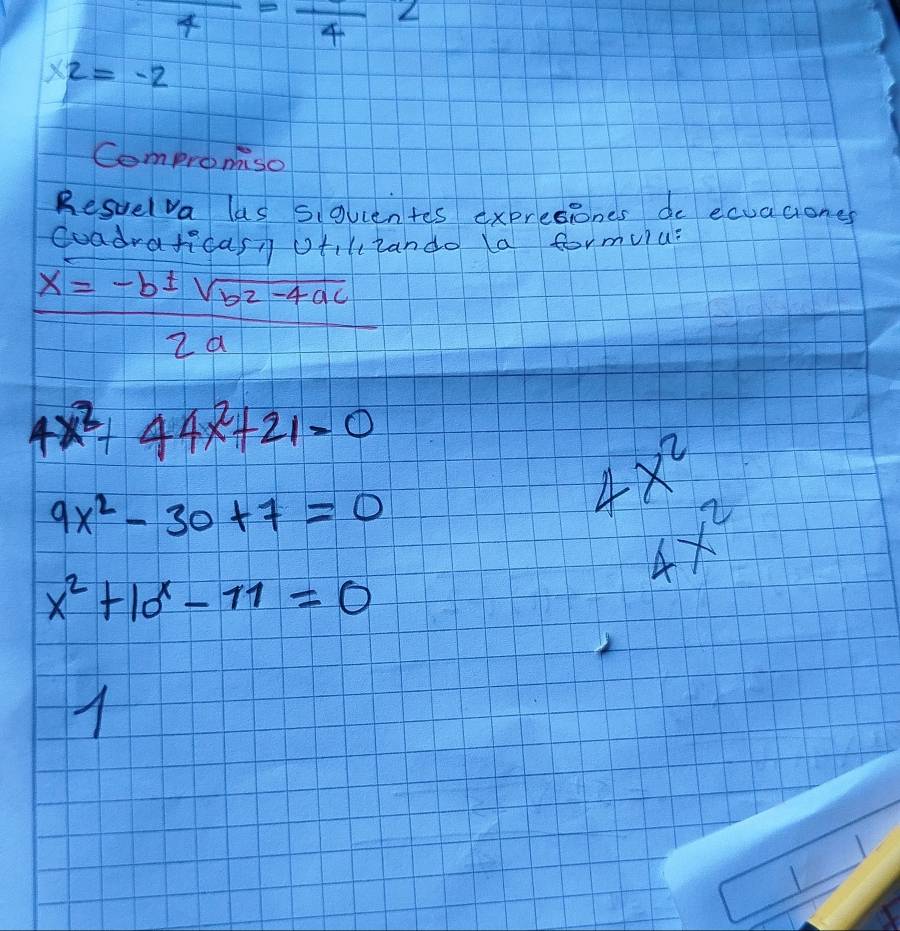 4 = 4 2
x2 = -2
Compromiso
Resuelva las siguientes expresiones de ecuaciones
cuadraticas, utilizando la formula:
x = -b ± √b2 -4ac
2a
4x² + 44x² + 21 = 0
9x² - 30 + 7 = 0
x² + 10x - 11 = 0
4x²
4x²
1